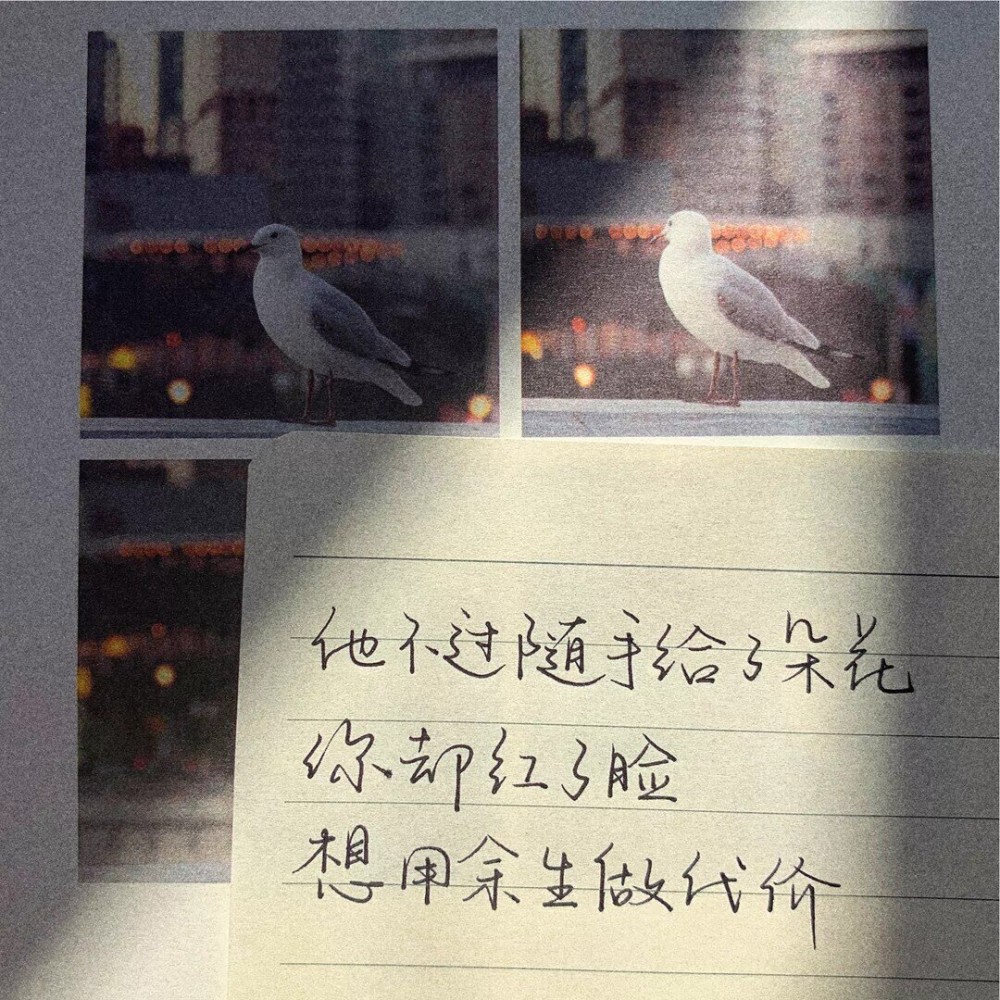 他不过随手给了朵花
你却红了脸
想用余生做代价